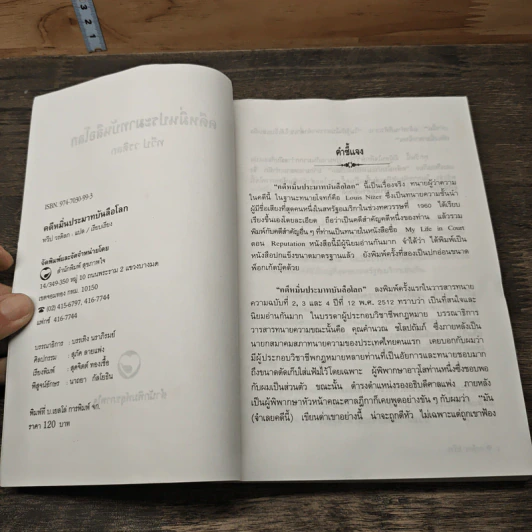 ISBN 974-7050-99-3
คดีหมิ่นประมาทบันลือโลก
ทวีป วรดิลก : แปล / เรียบเรียง
จัดพิมพ์และจัดจำหน่ายโดย
สำนักพิมพ์ สุขภาพใจ
14/349-350 หมู่ 10 ถนนพระราม 2 แขวงบางมด
เขตจอมทอง กทม. 10150
(02) 415-6797, 416-7744
แฟกซ์ 416-7744
บรรณาธิการ : บรรเทิง
ศิลปกรรม :
เรียงพิมพ์ :
พิสูจน์อักษร :
พิมพ์ที่ บ.เซลโล่ การพิมพ์ จก.
ราคา 120 บาท
คำชี้แจง
"คดีหมิ่นประมาทบันลือโลก" นี้เป็นเรื่องจริง ทนายผู้ว่าความ
ในคดีนี้ ในฐานะทนายโจทก์คือ Louis Nizer ซึ่งเป็นทนายความชั้นนำ
ผู้มีชื่อเสียงที่สุดคนหนึ่งในสหรัฐอเมริกาในช่วงทศวรรษที่ 1960 ได้เรียบ
เรียงขึ้นเองโดยละเอียด ถือว่าเป็นคดีสำคัญคดีหนึ่งของท่าน แล้วรวม
พิมพ์กับคดีสำคัญอื่น ๆ ที่ท่านเป็นทนายในหนังสือชื่อ My Life in Court
ตอน Reputation หนังสือนี้มีผู้นิยมอ่านกันมาก จำได้ว่า ได้พิมพ์เป็น
หนังสือปกแข็งขนาดมาตรฐานแล้ว ยังพิมพ์ครั้งที่สองเป็นปกอ่อนขนาด
พ็อกเก็ตบุ๊คด้วย
"คดีหมิ่นประมาทบันลือโลก" ลงพิมพ์ครั้งแรกในวารสารทนาย
ความฉบับที่ 2, 3 และ 4 ปีที่ 12 พ.ศ. 2512 ทราบว่า เป็นที่สนใจและ
นิยมอ่านกันมาก ในบรรดาผู้ประกอบวิชาชีพกฎหมาย บรรณาธิการ
วารสารทนายความขณะนั้นคือ คุณคำนวณ ชโลปถัมภ์ ซึ่งภายหลังเป็น
นายกสมาคมสภาทนายความของประเทศไทยคนแรก เคยบอกกับผมว่า
มีผู้ประกอบวิชาชีพกฎหมายหลายท่านที่เป็นอัยการและทนายชอบมาก
ถึงขนาดตัดเก็บใส่แฟ้มไว้โดยเฉพาะ ผู้พิพากษาอาวุโสท่านหนึ่งซึ่งชอบพอ
กับผมเป็นส่วนตัว ขณะนั้น ดำรงตำแหน่งรองอธิบดีศาลแพ่ง ภายหลัง
เป็นผู้พิพากษาหัวหน้าคณะศาลฎีกาก็เคยพูดอย่างขัน ๆ กับผมว่า "มัน
(จำเลยคดีนี้) เขียนด่าเขาอย่างนี้ น่าจะถูกตีหัว ไม่เฉพาะแต่ถูกเขาฟ้อง